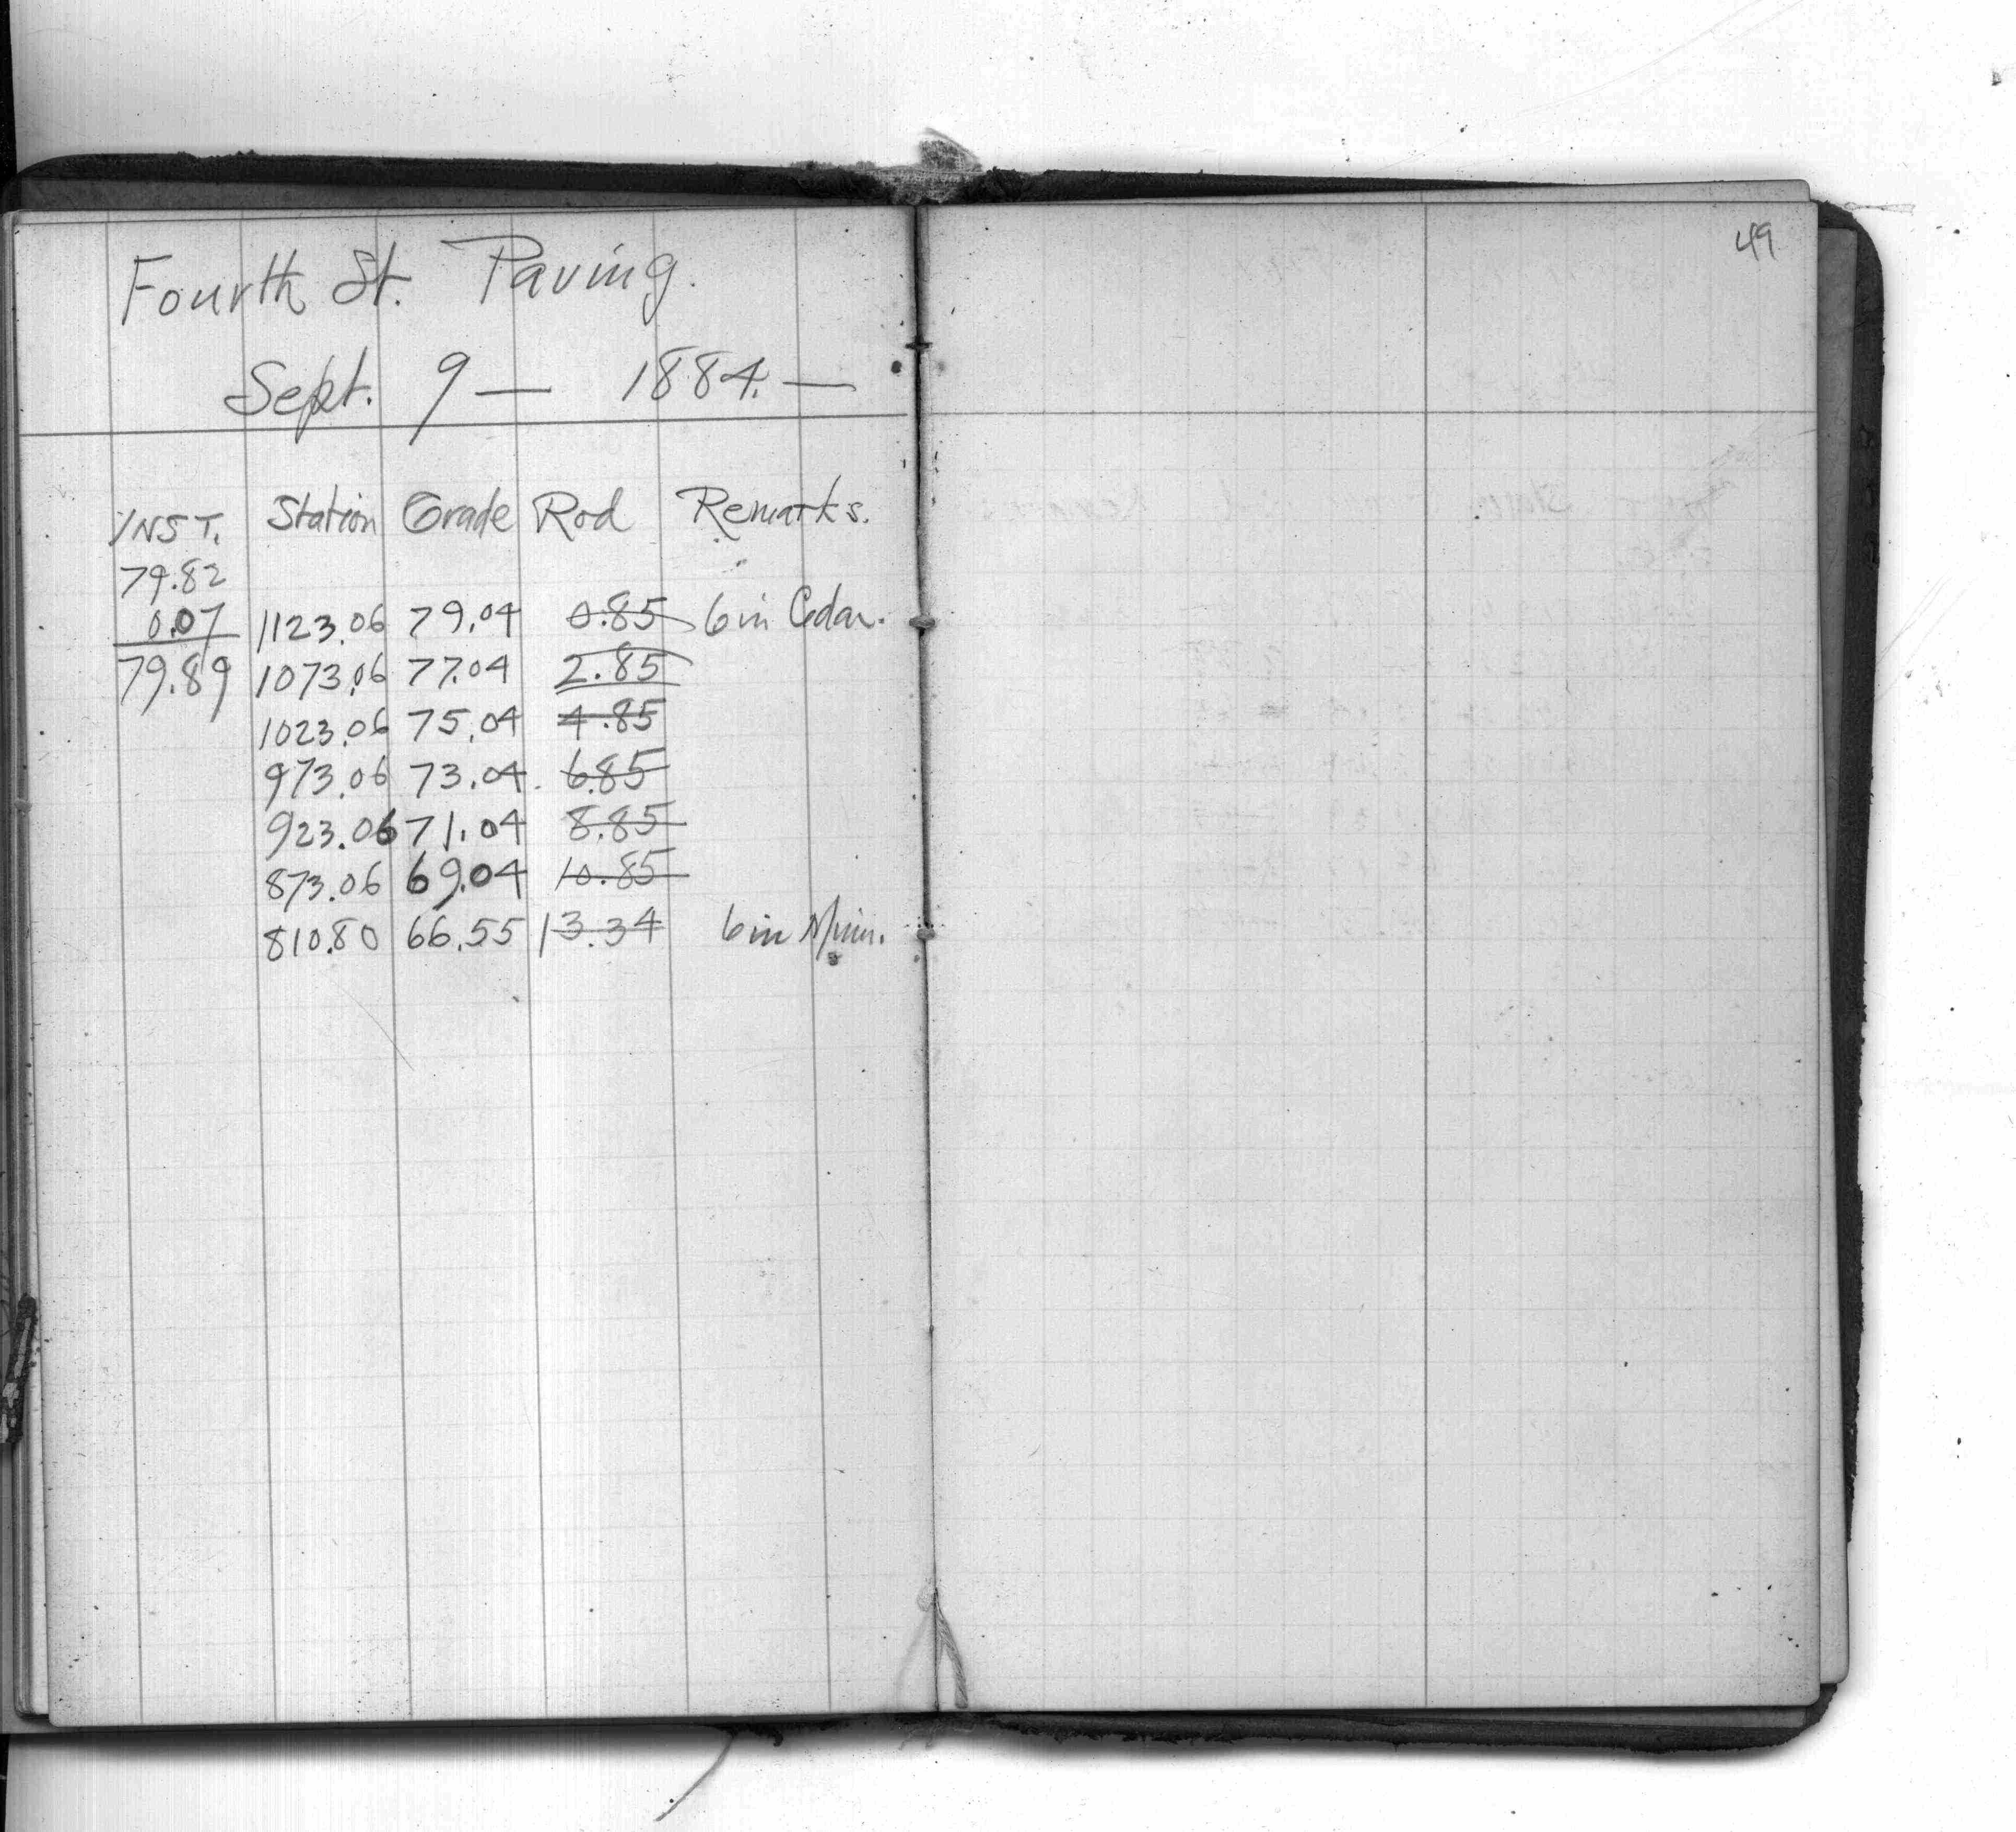 Fourth St. Paving.
Sept. 9 — 1884. —
49
INST. Station Grade Rod Remarks.
79.82
0.07 1123.06 79.04 0.85 6 in Cedar.
79.89 1073.06 77.04 2.85
1023.06 75.04 4.85
973.06 73.04. 6.85
923.06 71.04 8.85
873.06 69.04 10.85
810.80 66.55 13.34 6 in Minn.